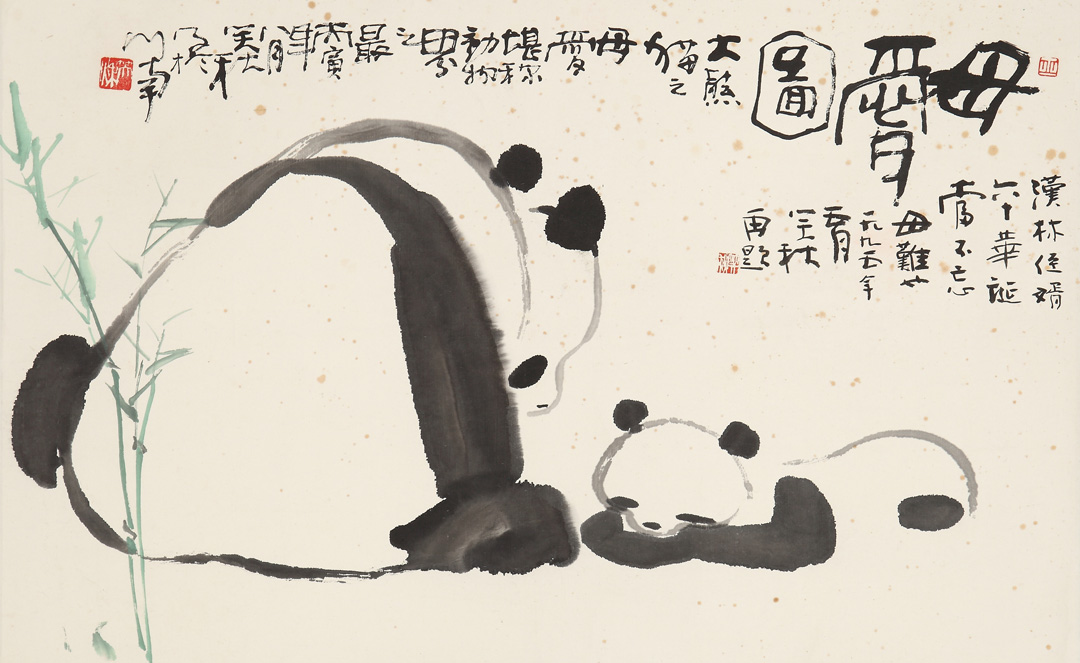 母愛圖
大熊
猫之
母
愛
堪称
動物
界
之
最
丙寅
年
八月
漢林侄婿
六十華誕
當不忘
母難也
一九九五年
再題